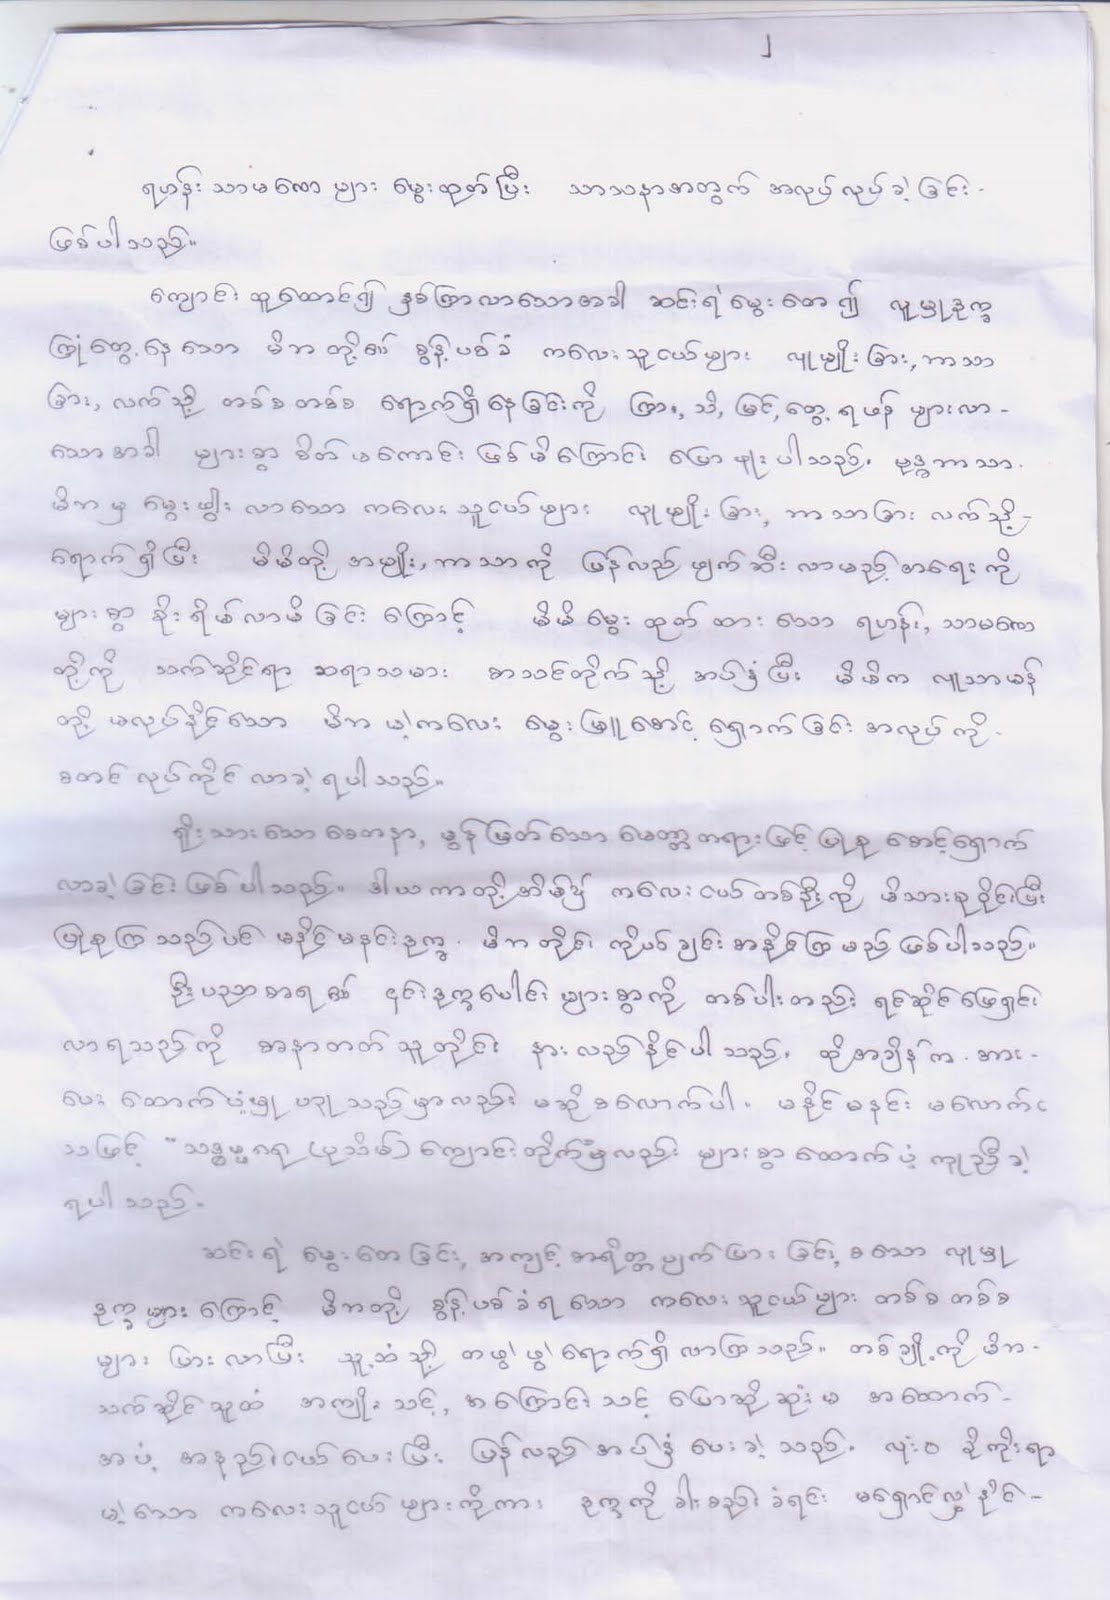 ၂
ရဟန်း သာမဏေ များ မွေးထုတ်ပြီး သာသနာအတွက် အလုပ်လုပ်ခဲ့ခြင်း-
ဖြစ်ပါသည်။
ကျောင်း ထူထောင်၍ နှစ်ကြာလာသောအခါ ဆင်းရဲမွေးတေ၍ လူမှုဒုက္ခ
ကြုံတွေ့နေသော မိဘတို့၏ စွန့်ပစ်ခံ ကလေးသူငယ်များ လူမျိုးခြား, ဘာသာ
ခြား, လက်သို့ တစ်စတစ်စ ရောက်ရှိနေခြင်းကို ကြား, သိ, မြင်, တွေ့ ရဖန် များလာ-
သောအခါ များစွာ စိတ်မကောင်း ဖြစ်မိကြောင်း ပြောပါသည်။ ဗုဒ္ဓဘာသာ
မိဘမှ မွေးဖွါး လာသော ကလေးသူငယ်များ လူမျိုးခြား, ဘာသာခြား လက်သို့-
ရောက်ရှိပြီး မိမိတို့ အမျိုး, ဘာသာကို ပြန်လည်ဖျက်ဆီး လာမည့်အရေးကို
များစွာ စိုးရိမ်လာမိခြင်း ကြောင့် မိမိမွေးထုတ်ထားသော ရဟန်း, သာမဏေ
တို့ကို သက်ဆိုင်ရာ ဆရာသမား စာသင်တိုက်သို့ အပ်နှံပြီး မိမိက လူသာမန်
တို့ မလုပ်နိုင်သော မိဘမဲ့ကလေး မွေးမြူစောင့်ရှောက်ခြင်း အလုပ်ကို-
စတင်လုပ်ကိုင်လာခဲ့ရပါသည်။
ရိုးသားသောစေတနာ, မွန်မြတ်သော မေတ္တာတရားဖြင့် ပြုစု စောင့်ရှောက်
လာခဲ့ခြင်း ဖြစ်ပါသည်။ ဒါယကာတို့အိမ်၌ ကလေးငယ်တစ်ဦးကို မိသားစုဝိုင်းပြီး
ပြုစုကြသည်ပင် မနိုင်မနင်းဒုက္ခ. မိဘတိုင်း ကိုယ်ချင်းစာနိုင်ကြမည်ဖြစ်ပါသည်။
ဦးပညာစာရ၏ ၎င်းဒုက္ခပေါင်းများစွာကို တစ်ပါးတည်း ရင်ဆိုင်ဖြေရှင်း
လာရသည်ကို သူတိုင်း နားလည်နိုင်ပါသည်။ ထိုအချိန်က အား-
ပေး ထောက်ပံ့မှု ပြုသည်မှာလည်း မဆိုစလောက်ပါ. မနိုင်မနင်း မလောက်င
သဖြင့် "သဒ္ဓမ္မဂရု (ပုသိမ်) ကျောင်းတိုက်မှလည်း များစွာထောက်ပံ့ ကူညီခဲ့
ရပါသည်.
ဆင်းရဲ မွေးတေခြင်း, အကျင့်စာရိတ္တပျက်ပြားခြင်း, စသော လူမှု
ဒုက္ခများကြောင့် မိဘတို့ စွန့်ပစ်ခံရသော ကလေးသူငယ်များ တစ်စတစ်စ
များ ပြားလာပြီး သူ့ထံသို့ တဖွဲဖွဲရောက်ရှိလာကြသည်။ တစ်ချို့ကို မိဘ-
သက်ဆိုင်သူထံ အကျိုးသင့်, အကြောင်းသင့် ပြောဆိုဆုံးမ အထောက်-
အပံ့ အနည်းငယ်ပေးပြီး ပြန်လည်အပ်နှံပေးခဲ့သည်. လုံးဝ ခိုကိုးရာ
မဲ့သော ကလေးသူငယ်များကိုကား ဒုက္ခကို ခါးစည်းခံရင်း မရှောင်လွှဲနိုင်-